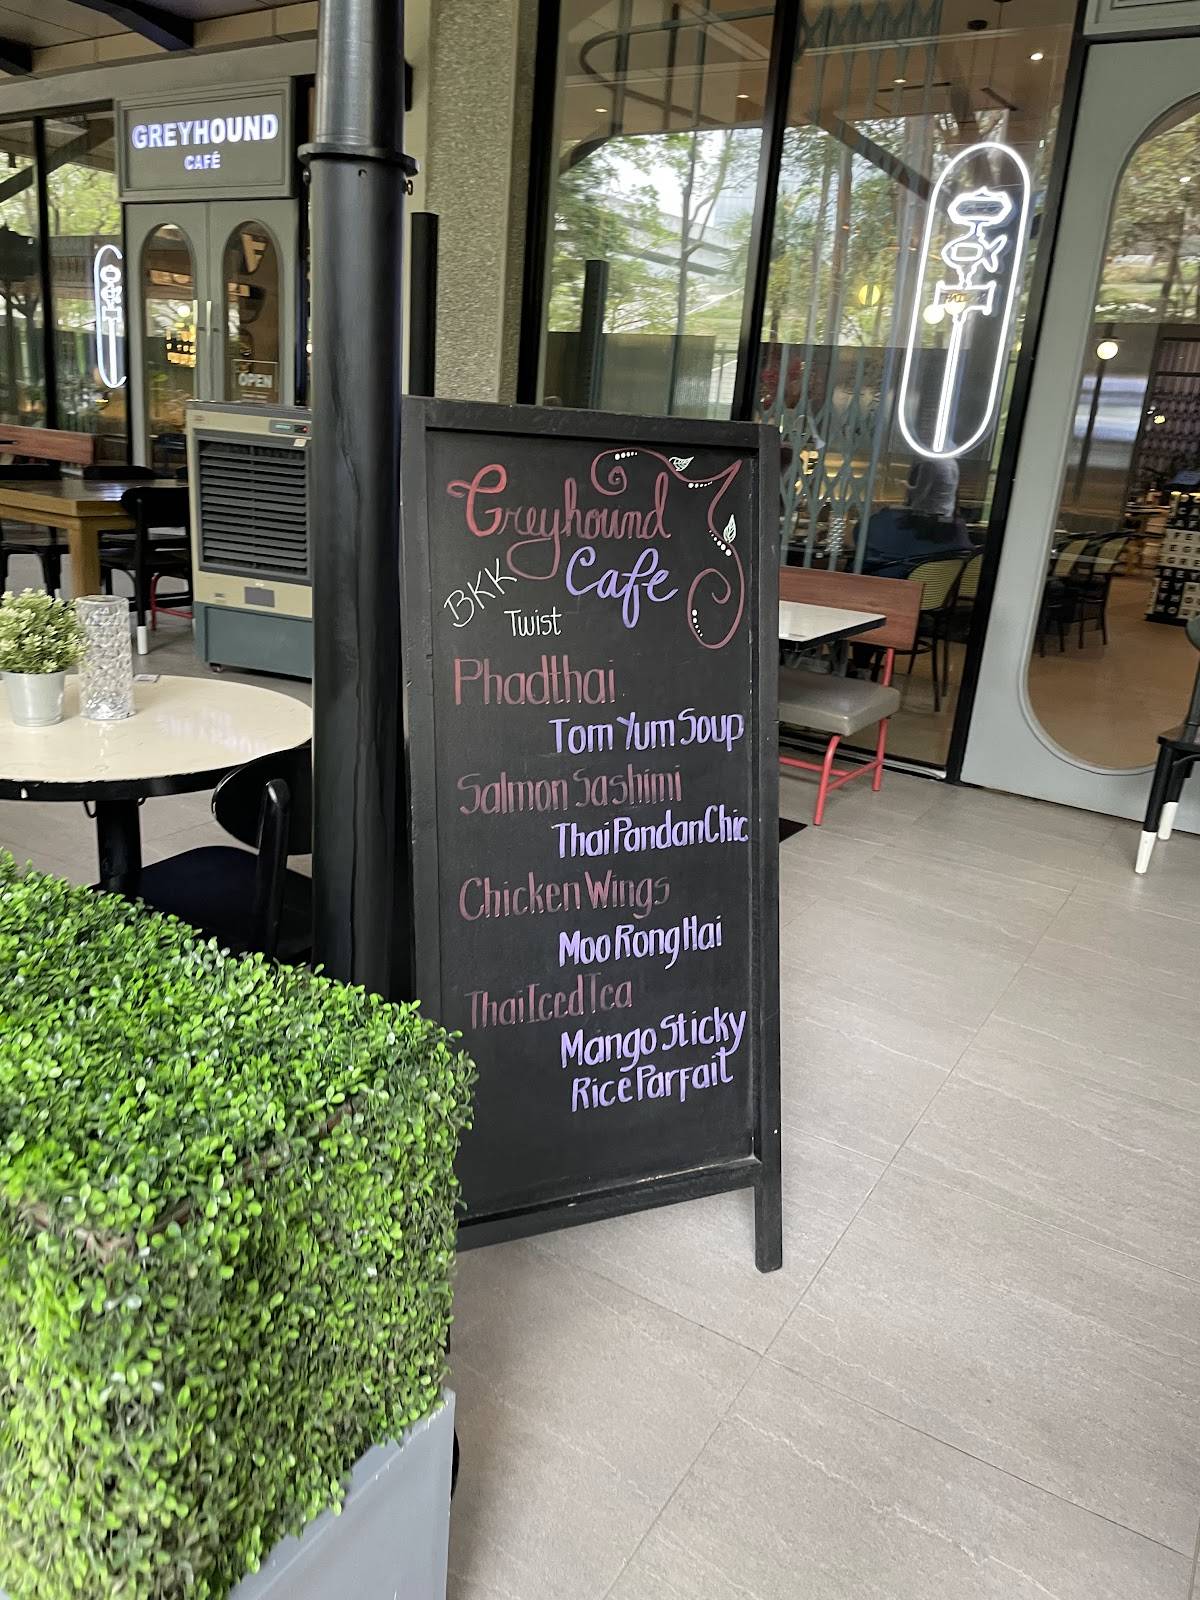 GREYHOUND
CAFÉ
OPEN
Greyhound
Cafe
BKK
Twist
Phadthai
Tom Yum Soup
Salmon Sashimi
Thai Pandan Chic
Chicken Wings
Moo Rong Hai
Thai Iced Tea
Mango Sticky
Rice Parfait